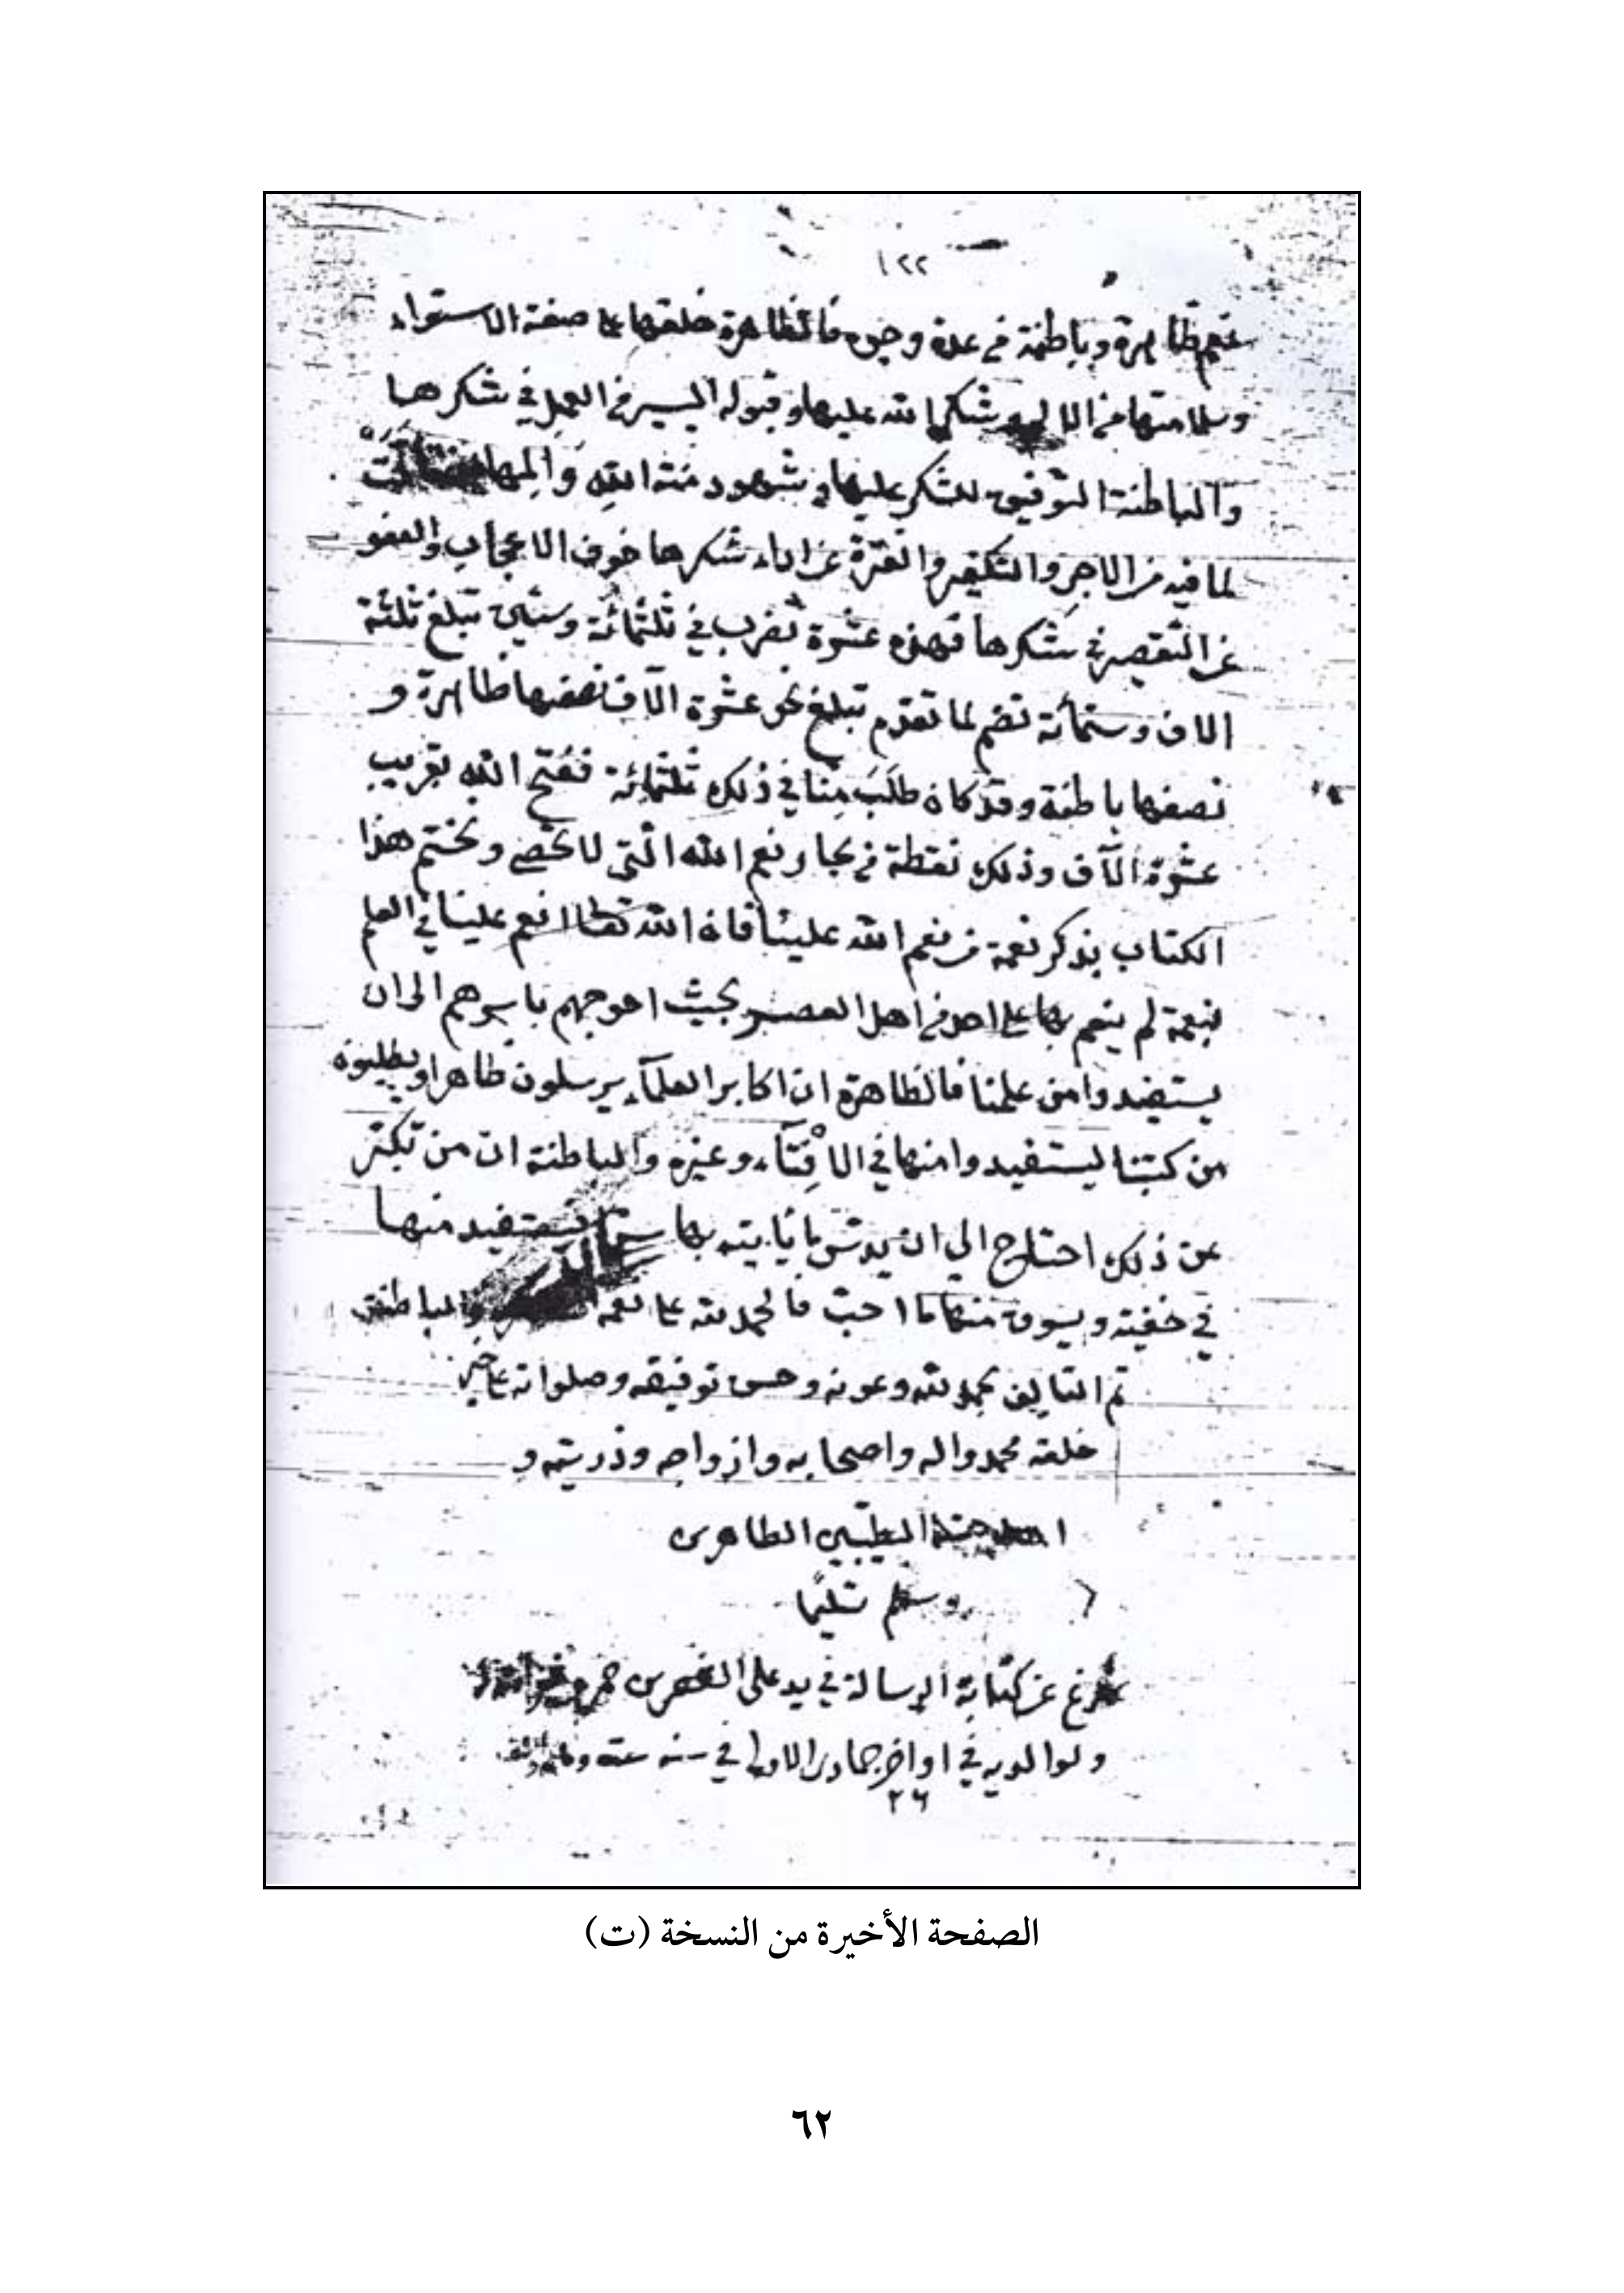 ١٢٢
نعم ظاهرة وباطنة من عدة وجوه فالظاهرة خلقها على صفة الاستواء
وسلامتها من الالم وشكر الله عليها وقبوله اليسير من العمل في شكرها
والباطنة التوفيق للشكر عليها وشهود منة الله والمها
لما فيه من الاجر والتكفير والفترة عن اداء شكرها خوف الاعجاب والعفو
عن التقصير في شكرها فهذه عشرة تضرب في ثلثمائة وستين تبلغ ثلثة
الاف وستمائة تضم لما تقدم تبلغ نحو عشرة الآف نصفها ظاهرة و
نصفها باطنة وقد كان طلب منا في ذلك ثلثمائة ففتح الله بقريب
عشرة الآف وذلك نقطة من بحار نعم الله التي لا تحصى ونختم هذا
الكتاب بذكر نعمة من نعم الله علينا فان الله تعالى انعم علينا في العلم
بنعمة لم ينعم بها على احد من اهل العصر بحيث احوجهم باسرهم الى ان
يستفيدوا من علمنا فالظاهرة ان اكابر العلماء يرسلون ظاهرا ويطلبون
من كتبنا ليستفيدوا منها في الافتاء وغيره والباطنة ان من تكبر
عن ذلك احتاج الى ان يدس الينا من ياتيه بها سرا يستفيد منها
في خفية ويسرق منها ما احب فالحمد لله على نعمه والباطنة
تم التاليف بحمد الله وعونه وحسن توفيقه وصلواته على خير
خلقه محمد واله واصحابه وازواجه وذريته و
الطيبين الطاهرين
وسلم تسليما
فرغ عن كتابة الرسالة في يد على
ولوالديه في اواخر جمادى الاولى في سنه ستة
٢٦
الصفحة الأخيرة من النسخة (ت)
٦٢